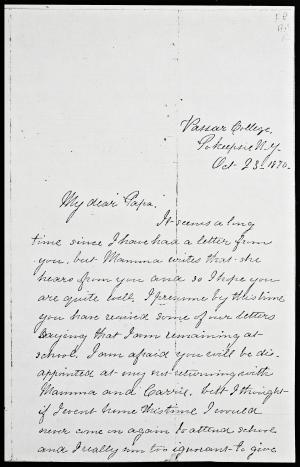 Vassar College,
Po'keepsie N.Y.
Oct 23rd 1870.
My dear Papa.
It seems a long
time since I have had a letter from
you, but Mamma writes that she
hears from you and so I hope you
are quite well. I presume by this time
you have received some of our letters
saying that I am remaining at
school. I am afraid you will be dis-
appointed at my not returning with
Mamma and Carrie, but I thought
if I went home this time I would
never come on again to attend school
and I really am too ignorant to give